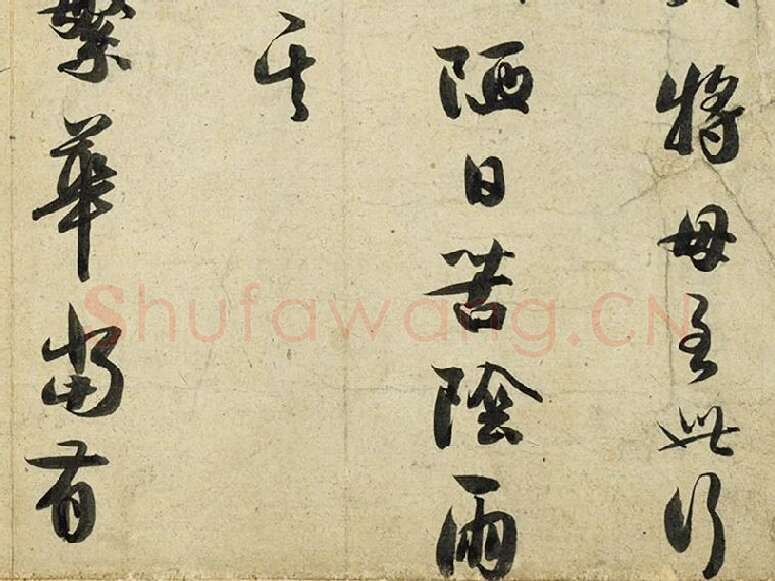 將母至此行
陋日苦陰雨
其
繁華當有
Shufawang.CN